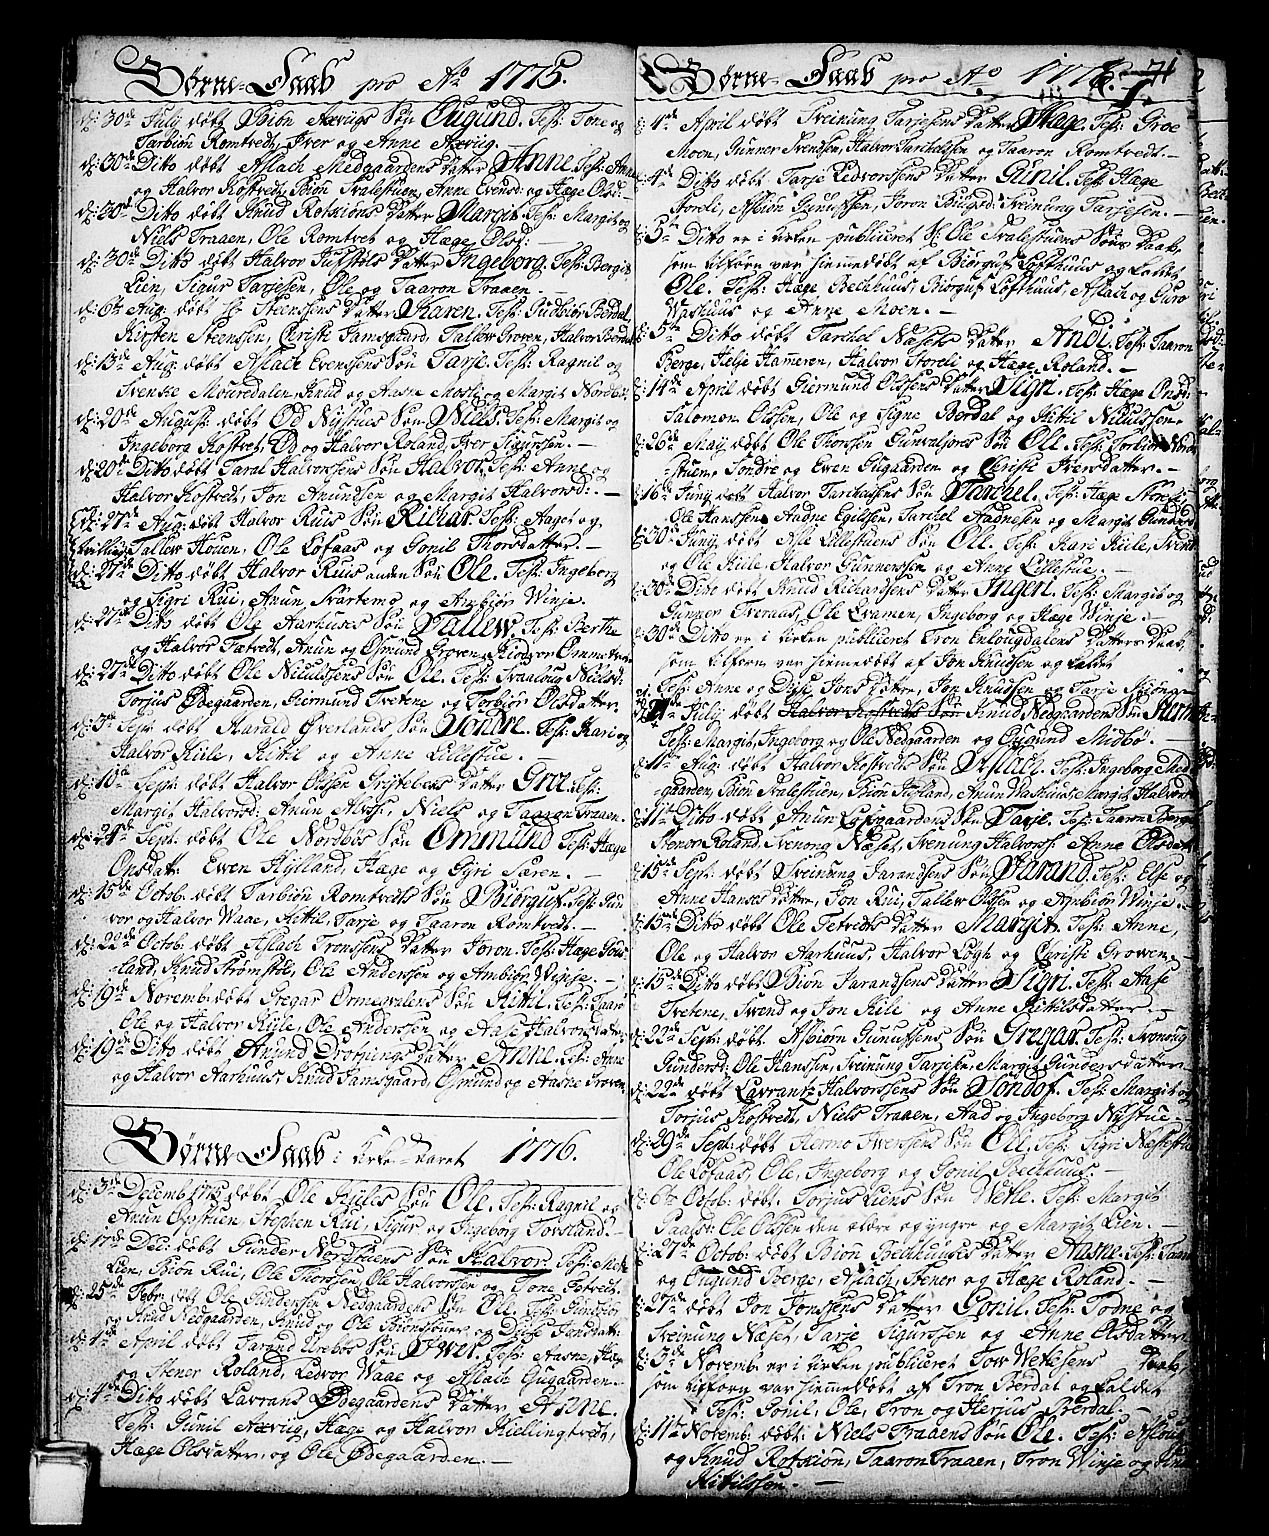 Börne-Daab pro Ao 1775.
d: 30de July döbt Biön Aarvigs Sön Augund. Test: Tone og
Tarbiön Romtvedt, Iver og Anne Aarvig.
d: 30de Ditto döbt Aslach Medgaardens Datter Anne. Test: Anne
og Halvor Kostvedt, Biön Svalestuen, Anne Evensd: og Hæge Olsd:
d: 30de Ditto döbt Knud Datter Margit. Test: Margit og
Niels Traaen, Ole Romtvet og Hæge Olsd: —
d: 30de Ditto döbt Halvor Datter Ingeborg. Test: Bergit
Lien, Sigur Tarjesen, Ole og Taaron Traaen. —
d: 6te Aug: döbt Steensens Datter Karen. Test: Gudbiör Berdal,
Kirsten Steensen, Christi Jamsgaard, Tallew Groven, Halvor Berdal
d: 13de Aug: döbt Aslach Evensens Sön Tarje. Test: Ragnil og
Svenke Mouredalen, Knud og Aasne og Margit Nordbö.
d: 20de August: döbt Od Nystues Sön Niels. Test: Margit og
Ingeborg Kostvet, Od og Halvor Roland, Iver Sigursen. —
d: 20de Ditto döbt Taral Halvorsens Sön Halvor. Test: Anne og
Halvor Kostvedt, Jon Anundsen og Margit Halvorsd: —
d: 27de Aug: döbt Halvor Ruis Sön Richar. Test: Aaget og
Tallew Houen, Ole Lofaas og Gonil Thorsdatter. —
d: 27de Ditto döbt Halvor Ruis anden Sön Ole. Test: Ingeborg
og Sigri Rui, Anun Svartemo og Ambiör Winje. —
d: 27de Ditto döbt Ole Aarhuses Sön Tallew. Test: Berthe
og Halvor Tatvedt, Anun og Osmund Groven,
d: 27de Ditto döbt Ole Niculssens Sön Ole. Test: Nielsd:
Torjus Ödegaarden, Giermund Tvetene og Torbiör Olsdatter.
d: 3de Sept: döbt Harald Överlands Sön Tondre. Test: Kari og
Halvor Kiile, Kittil og Anne Lillestue. —
d: 10de Sept: döbt Halvor Olssen Datter Groe. Test:
Margit Halvorsd: Anun Niels og Taaron Traaen.
d: 24de Sept: döbt Ole Nordbös Sön Ommund. Test: Hæge
Onsdatt: Ewen Hylland, Hæge og Gyri Saren. —
d: 15de Octob: döbt Tarbiön Romtvedts Sön Biörguf. Test: Gun
vor og Halvor Waae, Kittil Tarje og Taaron Romtvedt. —
d: 22de Octob: döbt Aslach Tronssens Datter Joron. Test: Hæge
land, Knud Strömstö, Ole Anderssen og Ambiör Winje. —
d: 19de Novemb: döbt Gregar Ormevalens Sön Kittil. Test:
Ole og Halvor Kiile, Ole Anderssen og Aase Halvorsdatter
d: 19de Ditto döbt Anund Datter Anne. Test: Anne
og Halvor Aarhuus, Knud Jamsgaard, Osmund og Aasne Groven
Börne Daab i Kirke-Aaret 1776.
d: 3de Decemb 1775 döbt Ole Kiiles Sön Ole. Test: Ragnil og
Anun Stephen Rui, Sigur og Ingeborg Tovsland. —
d: 17de Dec: döbt Gunder Nordstuens Sön Halvor. Test:
Lien, Biön Rui, Ole Thorssen, Ole Halvorssen og Tone Tatvedt.
d: 25de Febr. döbt Ole Gundersen Nedgaardens Sön Ole. Test:
og Knud Nedgaarden, Knud og Ole Biönsönner, og Dörte
d: 4de April döbt Tarand Urebös Sön Iwer. Test: Aasne, Hæge
og Stener Roland, Ledvor Waae og Aslach Gugaarden. —
d: 4de Ditto döbt Lavrans Ödegaardens Datter Anne.
Test: Gunil Aarvig, Hæge og Halvor Kiellingtvedt,
Hæge Olsdatter, og Ole Ödegaarden. —
Börne-Daab pro Ao. 1776. 71
d: 4de April döbt Sveining Tarjesens Datter Hæge. Test: Groe
Moen, Gunner Svendsen, Halvor Tarchelssen og Taaron Romtvedt. —
d: 4de Ditto döbt Tarje Ledvorssens Datter Gunil. Test: Hæge
Storeli, Asbiön Gunufssen, Joron Sveinung Tarjesen. —
d: 5te Ditto er i Kirken publiceret Ole Svalestuens Söns Daab,
som tilforn var hiemmedöbt af Biörguf Lofthuus og kaldet
Ole. Test: Hæge Bechhuus, Biörguf Lofthuus, Aslach og Guro
Washuus og Anne Moen. —
d: 5te Ditto döbt Tarchel Næsets Datter Andi. Test: Taaron
Berge, Helje Hameren, Halvor Storeli og Hæge Roland. —
d: 14de April döbt Giermund Olssens Datter Sign. Test: Hæge Onsd:
Salomon Olssen, Ole og Signe Berdal og Kittil Niculssen
d: 26de May döbt Ole Thorssen Gunvalsjores Sön Ole. Test: Torbiör
stuen, Sondre og Ewen Gugaarden og Christi Iversdatter. —
d: 16de Juny döbt Halvor Tarchelsens Sön Tarchel. Test: Hæge Storeli
Ole Hanssen, Aadne Egilssen, Tarchel Aadnesen og Margit Gundersd
d: 30de Juny döbt Asle Lillestuens Sön Ole. Test: Kari Kiile, Svend
og Ole Kiile, Halvor Gunnerssen og Anne Lillestue. —
d: 30de Ditto döbt Knud Richardsens Datter Ingen. Test: Margit og
Gunner Tveraas, Ole Qvamen, Ingeborg og Hæge Winje. —
d: 30de Ditto er i Kirken publiceret Tron Datters Daab,
som tilforn var hiemmedöbt af Jon Knudssen og kaldet
Test: Anne og Dörte Jons Datter, Jon Knudssen og Tarje
July döbt Halvor Kostvedts Sön Knud Nedgaardens Sön
Test: Margit, Ingeborg og Ole Nedgaarden og Osmund Midbö. —
d: 11te Aug: döbt Halvor Kostvedts Sön Aslac. Test: Ingeborg Med
gaarden, Biön Svalestuen, Biön Anun Washuus, Margit Halvorsd
d: 11te Ditto döbt Anun Sön Tarje. Test: Taaron Berge,
Stenor Roland, Svenong Næset, Svenung Halvorss: Anne Olsdat
d: 15de Sept: döbt Sveinung Jarandsens Sön Jarand. Test: Else og
Anne Hanses Datter, Jon Rui, Tallew Olssen og Ambiör Winje. —
d: 15de Ditto döbt Ole Tetvedts Datter Margit. Test: Anne,
Ole og Halvor Aarhuus, Halvor og Christi Growen. —
d: 15de Ditto döbt Biön Jarandsens Datter Sigri. Test: Aase
Tvetene, Svend og Jon Kiile og Anne Kittilsdatter. —
d: 22de Sept: döbt Asbiörn Gunufssens Sön Gregar. Test: Svonaug
Gundersd: Ole Hanssen, Sveinung Tarjesen, Margit Gundersdatter
d: 22de döbt Lavrantz Halvorssens Sön Tondof. Test: Margit og
Torjus Kostvedt, Niels Traaen, Aad og Ingeborg Nystue.
d: 29de Sept: döbt Hermo Iverssens Sön Ole. Test: Sigri
Ole Lofaas, Ole, Ingeborg og Gonil Bechhuus. —
d: 6te Octob: döbt Torjus Liens Sön Wetle. Test: Margit
Ole Olssen den eldre og yngre og Margit Lien. —
d: 27de Octob: döbt Biön Bechhuses Datter Aasne. Test: Taaron
og Augund Berge, Aslach, Stener og Hæge Roland. —
d: 27de döbt Jon Jonssens Datter Gonil. Test: Todne og
Sveinung Næset, Tarje Sigurssen og Anne Olsdatter
d: 3de Novemb: er i Kirken publiceret Tow Wetlesens Daab,
som tilforn var hiemmedöbt af Tron Berdal og kaldet
Test: Gonil, Ole, Tron og Herjus Berdal. —
d: 11te Novemb: döbt: Niels Traaens Sön Ole. Test: Aslaug
og Knud Taaron Traaen, Tron Winje og
Kittilssen. —